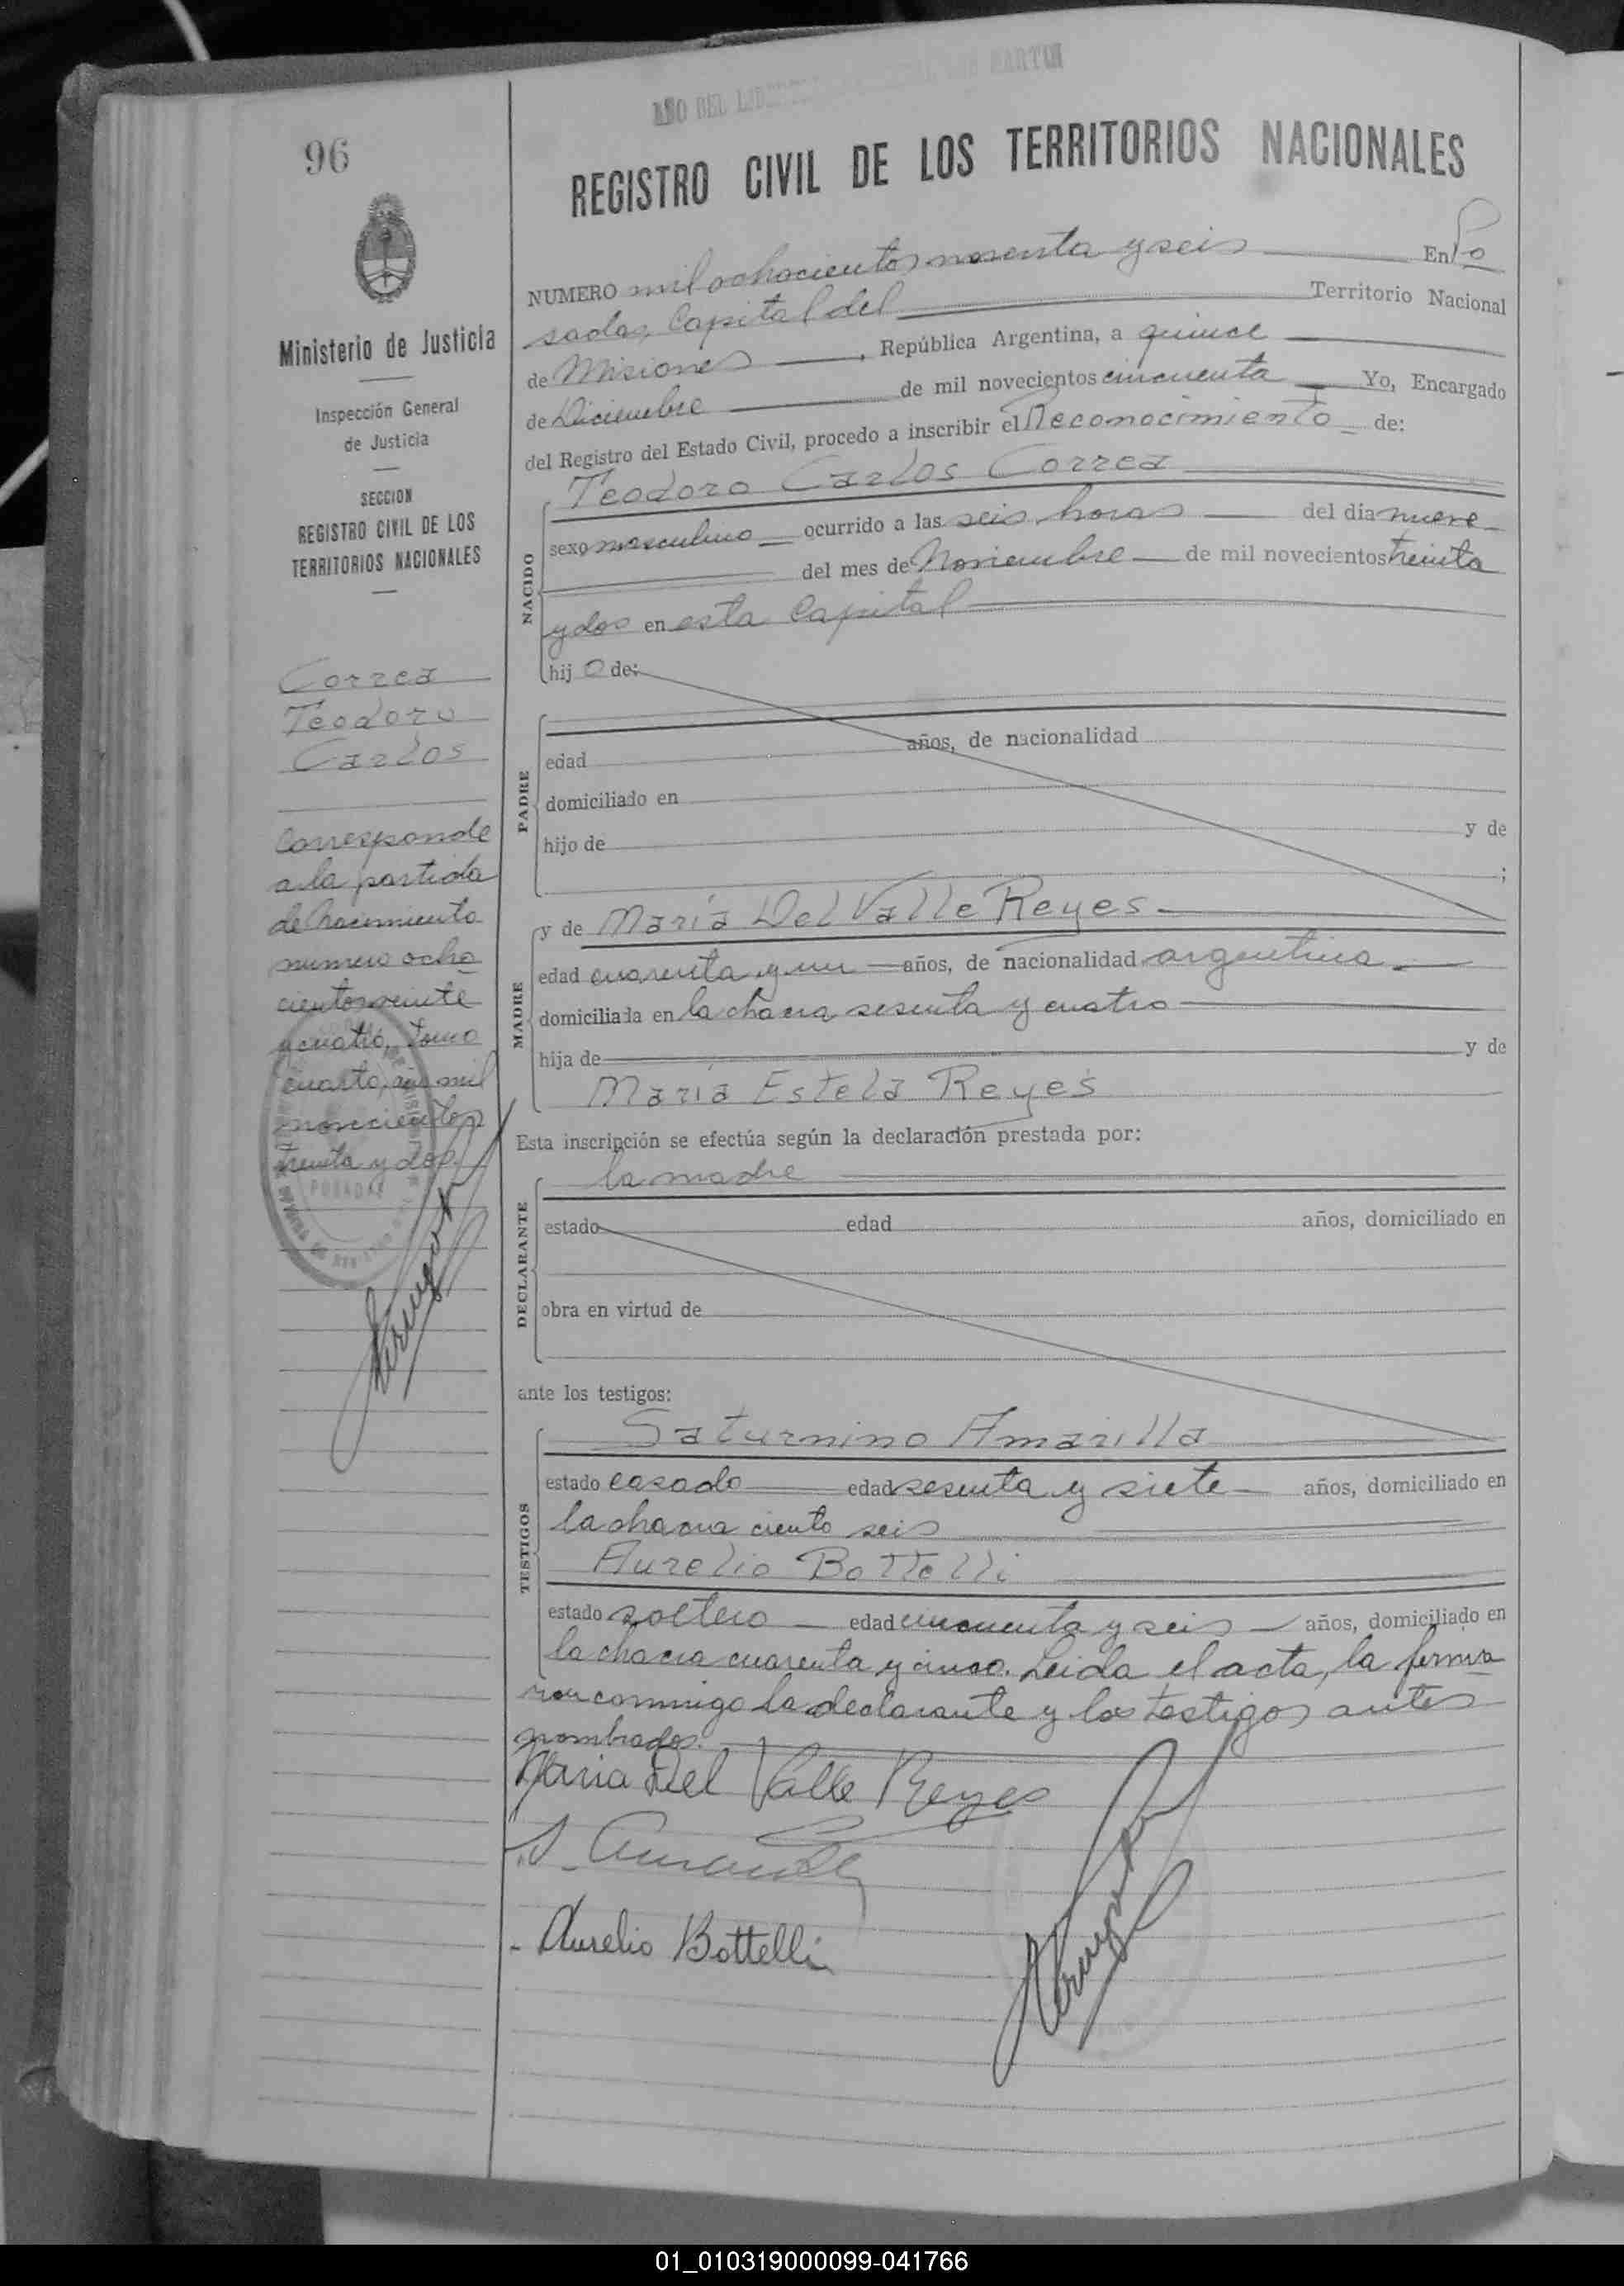 AÑO DEL LIB
MARTIN
96
REGISTRO CIVIL DE LOS TERRITORIOS NACIONALES
Ministerio de Justicia
Inspección General
de Justicia
SECCION
REGISTRO CIVIL DE LOS
TERRITORIOS NACIONALES
Correa
Teodoro
Carlos
Corresponde
a la partida
de Nacimiento
numero ocho
cientos veinte
y cuatro, tomo
cuarto, mil
novecientos
treinta y dos.
POSADAS
NUMERO mil ochocientos noventa y seis En Po
sadas, Capital del Territorio Nacional
de Misiones, República Argentina, a quince
de Diciembre de mil novecientos cincuenta Yo, Encargado
del Registro del Estado Civil, procedo a inscribir el Reconocimiento de:
NACIDO
Teodoro Carlos Correa
sexo masculino ocurrido a las seis horas del día nueve
del mes de Noviembre de mil novecientos treinta
y dos en esta Capital
hij o de:
PADRE
edad años, de nacionalidad
domiciliado en
hijo de y de
;
MADRE
y de María Del Valle Reyes
edad cuarenta y un años, de nacionalidad argentina
domiciliada en la chacra sesenta y cuatro
hija de y de
María Estela Reyes
Esta inscripción se efectúa según la declaración prestada por:
DECLARANTE
la madre
estado edad años, domiciliado en
obra en virtud de
ante los testigos:
TESTIGOS
Saturnino Amarilla
estado casado edad sesenta y siete años, domiciliado en
la chacra ciento seis
Aurelio Bottelli
estado soltero edad cincuenta y seis años, domiciliado en
la chacra cuarenta y cinco. Leida el acta, la firma
ron conmigo la declarante y los testigos antes
nombrados.
Maria Del Valle Reyes
Aurelio Bottelli
01_010319000099-041766